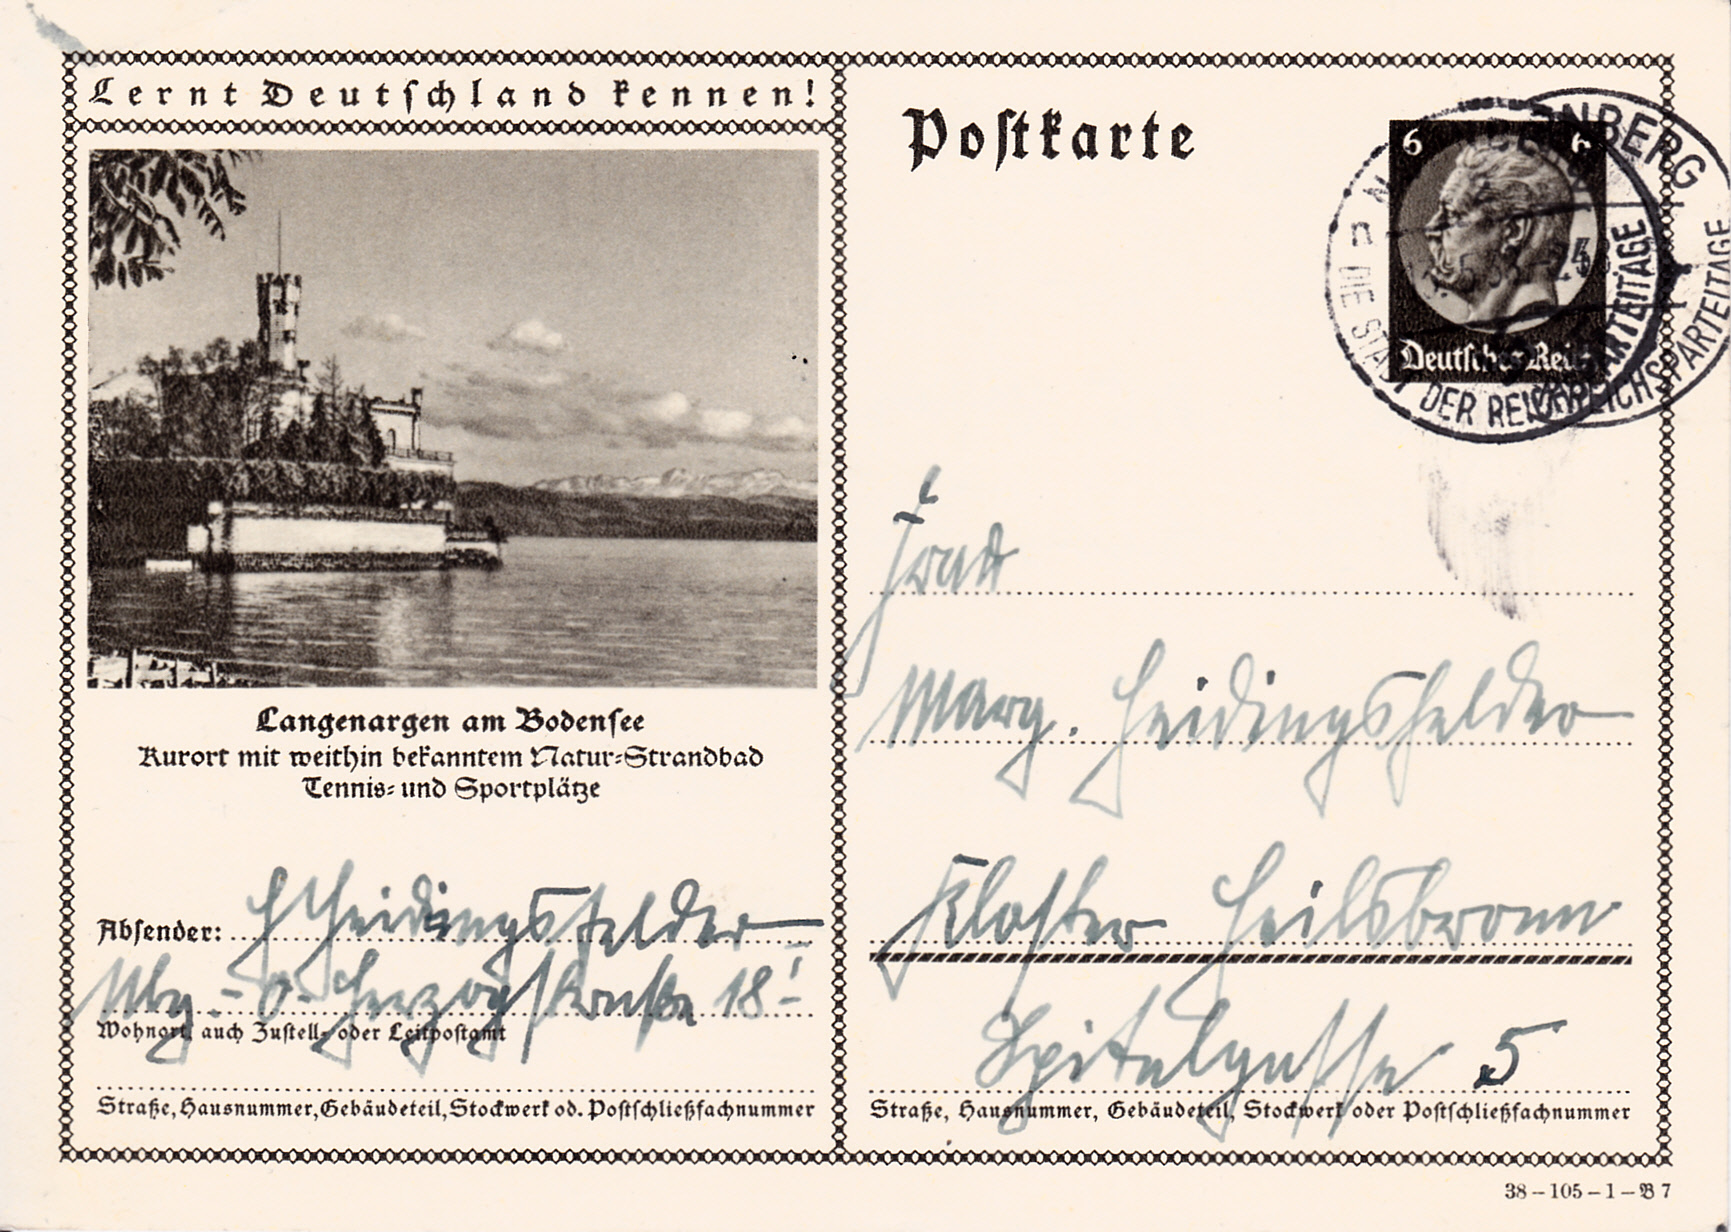 Lernt Deutschland kennen!
Langenargen am Bodensee
Kurort mit weithin bekanntem Natur-Strandbad
Tennis- und Sportplätze
Absender: Heidingsfelder
Nbg. - O. Herzogstraße 18
Wohnort, auch Zustell- oder Leitpostamt
Straße, Hausnummer, Gebäudeteil, Stockwerk od. Postschließfachnummer
Postkarte
6 6
Deutsches Reich
NÜRNBERG
DIE STADT DER REICHSPARTEITAGE
NBERG
REICHSPARTEITAGE
Frau
Marg. Heidingsfelder
Kloster Heilsbronn
Spitalgasse 5
Straße, Hausnummer, Gebäudeteil, Stockwerk oder Postschließfachnummer
38-105-1-B 7